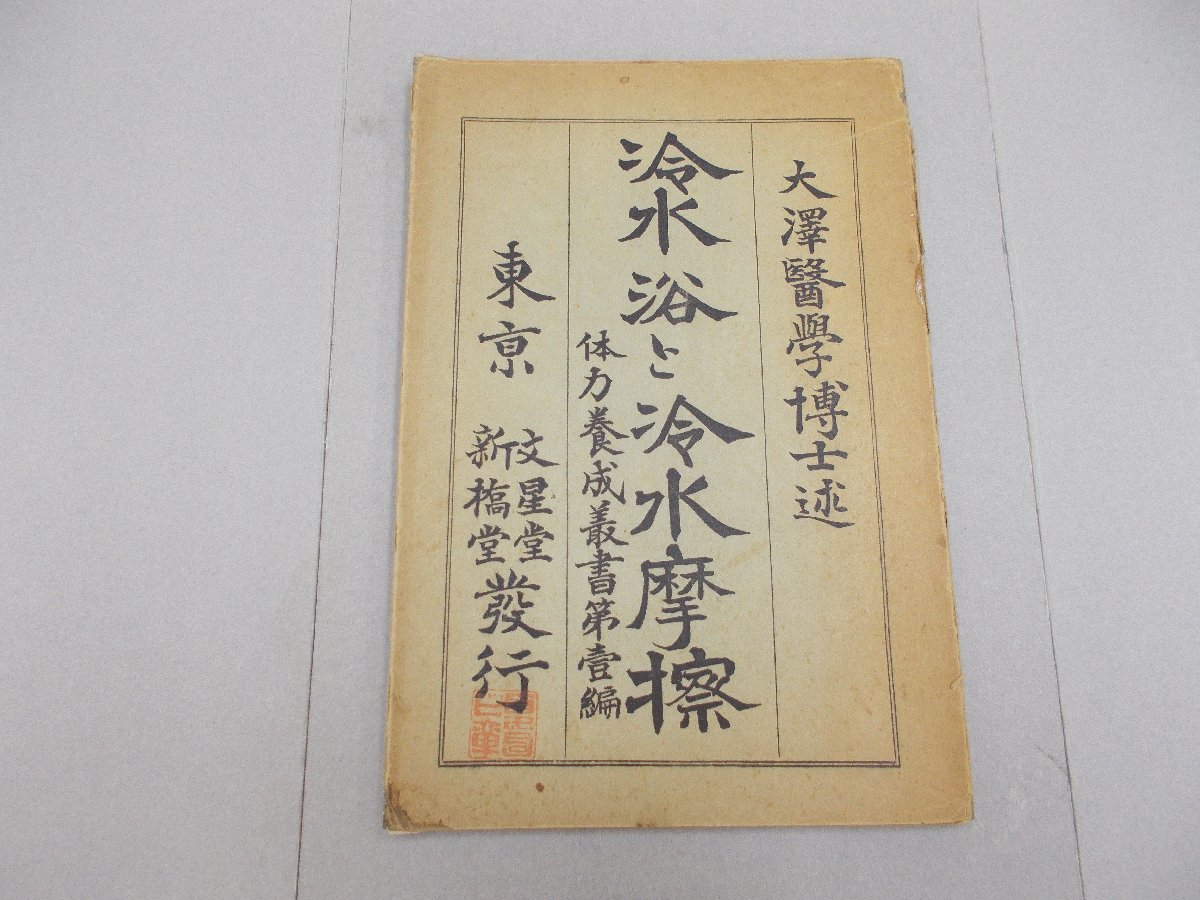 大澤醫學博士述
冷水浴と冷水摩擦
体力養成叢書第壹編
東京
文星堂
新橋堂
發行